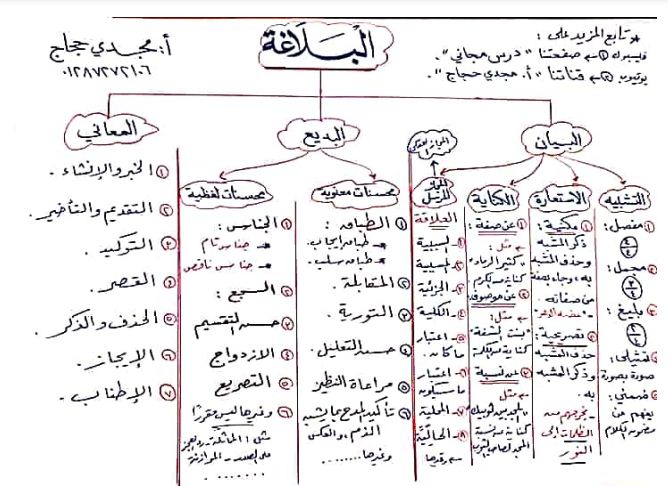 البلاغة
* تابع المزيد على :
فيسبوك ① صفحتنا "درس مجاني".
يوتيوب ② قناتنا "أ. مجدي حجاج".
أ: مجدي حجاج
٠١٢٨٧٢٧٢١٠٦
البيان
البديع
المعاني
التشبيه
① مفصل:
٤/٤
② مجمل:
٣/٤
③ بليغ:
٢/٤
تمثيلي:
صورة بصورة
ضمني:
يفهم من
مضمون الكلام
الاستعارة
① مكنية:
ذكر المشبه
وحذف المشبه
به، وجاء بصفة
من صفاته.
② تصريحية:
حذف المشبه
وذكر المشبه
به.
- يخرجهم من
الظلمات إلى
النور
الكناية
① عن صفة:
مثل:
"كثير الرماد"
كناية عن الكرم
② عن موصوف:
مثل:
③ عن نسبة
مثل
كناية عن نسبة
المجاز المرسل
العلاقة
① السببية
② المسببية
③ الجزئية
④ الكلية
⑤ اعتبار
ما كان.
⑥ اعتبار
ما سيكون
⑦ المحلية
⑧ الحالية
محسنات معنوية
① الطباق:
* طباق إيجاب.
* طباق سلب.
② المقابلة.
③ التورية.
④ حسن التعليل.
⑤ مراعاة النظير
⑥ تأكيد المدح بما يشبه
الذم، والعكس
وغيرها........
محسنات لفظية
① الجناس:
* جناس تام
* جناس ناقص
② السجع:
③ حسن التقسيم
④ الازدواج
⑤ التصريع
⑥ وغيرها ليس مقررا
على الصدر - الموازنة
........
① الخبر والإنشاء.
② التقديم والتأخير.
③ التوكيد.
④ القصر.
⑤ الحذف والذكر.
⑥ الإيجاز.
⑦ الإطناب.